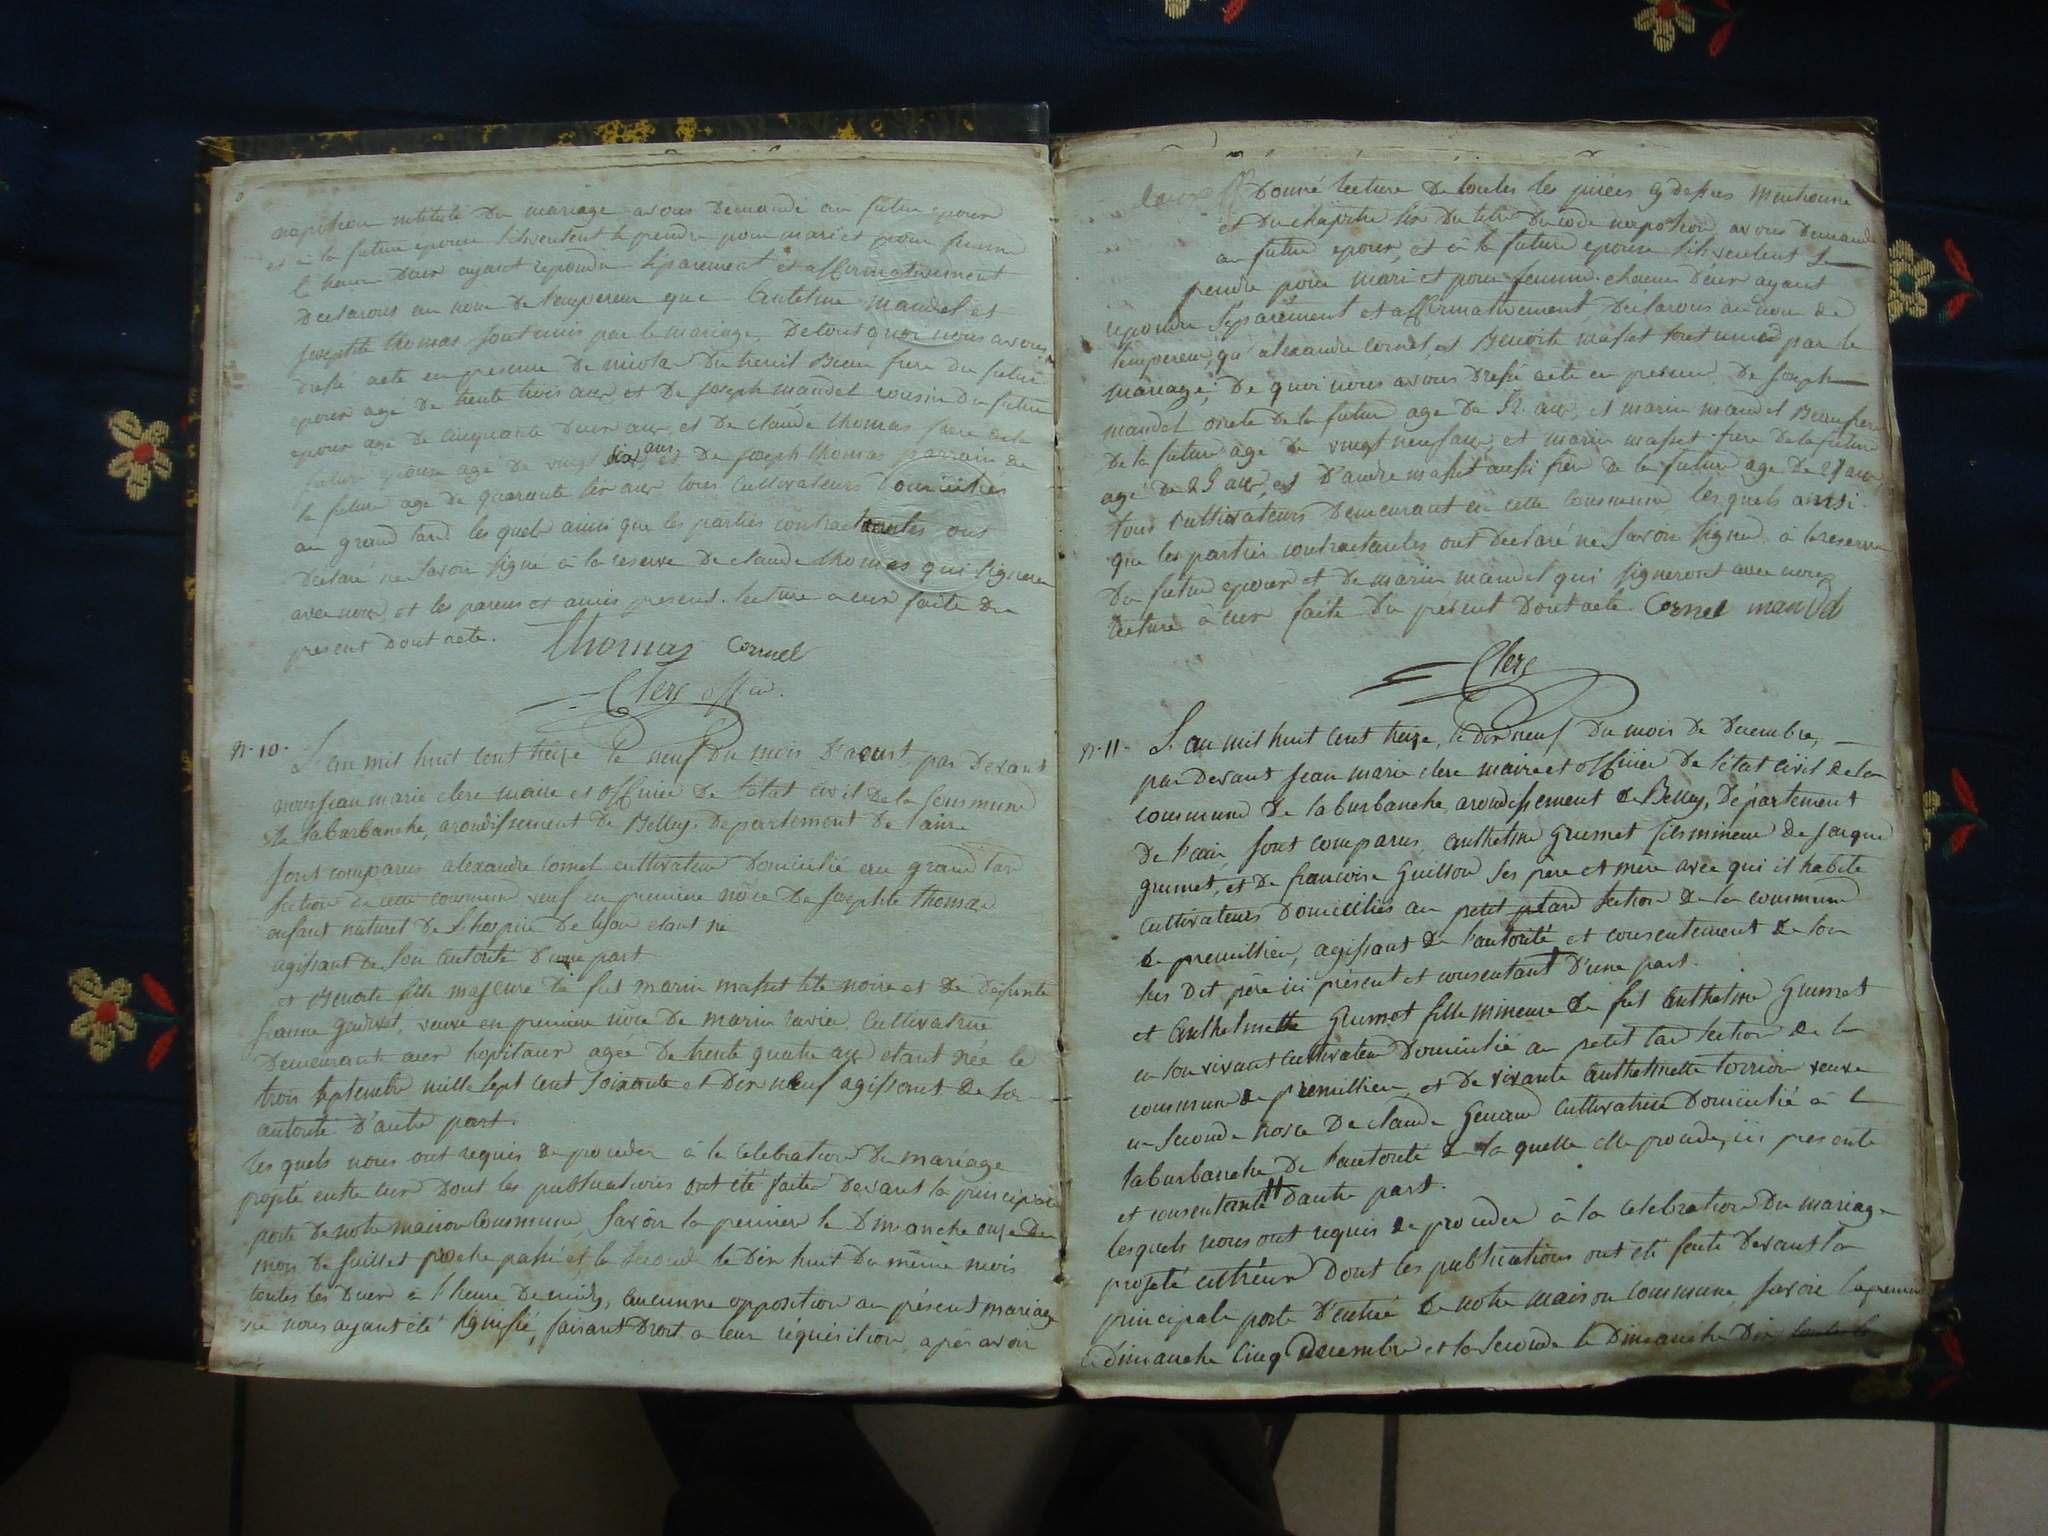 napoleon intitulé du mariage avons demandé au futur epoux
et à la future epouse s'ils veulent se prendre pour mari et pour femme
chacun deux ayant repondu séparement et affirmativement
declarons au nom de l'empereur que Anthelme mandel et
josephte thomas sont unis par le mariage, De tout quoi nous avons
dressé acte en presence De nicolas Dutreuil Beau frere du futur
epoux agé de trente trois ans, et de joseph mandel cousin du futur
epoux agé de cinquante deux ans et de claude thomas frere de la
future epouse agé de vingt six ans, et De joseph thomas parrain de
la future agé de quarante six ans tous cultivateurs Domiciliés
au grand tard lesquels ainsi que les parties contractantes ont
declaré ne savoir signé à la reserve De claude thomas qui signera
avec nous, et les parens et amis present. lecture a eux faite du
present dont acte.
thomas Cornel
Clerc offici.
N. 10.
L'an mil huit cent treize le neuf Du mois D'aoust, par devant
nous jean marie clerc maire et officier De l'état civil de la Commune
De laburbanche, arondissement De Belley, Departement De l'ain
sont comparus alexandre Cornel cultivateur Domicilié au grand tard
section de cette commune veuf en premiere nôce De josephte thomas
enfant naturel De l'hospice De lyon etant né
agissant de son autorité D'une part
et Benoite fille majeure De feu marin masset tête noire et De défunte
jeanne , veuve en premiere nôce De marin ravier Cultivatrice
Demeurante aux hopitaux agée De trente quatre ans etant née le
trois septembre mille sept cent soixante et Dix neuf agissant De son
autorité D'autre part.
lesquels nous ont requis de proceder à la celebration De mariage
projeté entre eux Dont les publications ont été faites Devant la principale
porte De notre maison Commune, savoir la premiere le Dimanche onze du
mois De juillet proche passé et la seconde le Dix huit Du même mois
toutes les Deux à l'heure De midy, aucunne opposition au présent mariage
ne nous ayant été signifié, faisant Droit a leur réquisition, après avoir
Donné lecture De toutes les pieces cy dessus mentionné
et Du chapitre six Du titre Du code napoleon, avons Demandé
au futur epoux, et à la future epouse s'ils veulent se
prendre pour mari et pour femme. chacun D'eux ayant
repondu séparément et affirmativement, Déclarons au nom de
l'empereur, qu'alexandre Cornel et Benoite masset sont unis par le
mariage; De quoi nous avons Dressé acte en presence De joseph
mandel oncle de la future agé De 52 ans, et marin mandel Beaufrere
De la future agé de vingt neuf ans, et marin masset frere De la future
agé De 25 ans, et D'andre masset aussi frere De la future agé De 27 ans
tous cultivateurs Demeurant en cette Commune lesquels ainsi
que les parties contractantes ont Declaré ne savoir signer à la reserve
Du futur epoux et De marin mandel qui signeront avec nous
lecture à eux faite Du présent Dont acte. Cornel mandel
Clerc
N. 11.
L'an mil huit cent treize, le dix neuf Du mois De Decembre,
par devant jean marie clerc maire et officier De l'état civil De la
commune De laburbanche arondissement De Belley, Département
De l'ain, sont comparus anthelme Grumet fils mineur De jacque
grumet, et De francoise Guillon ses père et mère avec qui il habite
cultivateurs Domicilliés au petit tard section De la commune
De premillieu, agissant De l'autorité et consentement De son
sus Dit père ici présent et consentant D'une part.
et Anthelmette Grumet fille mineure De feu Anthelme Grumet
en son vivant cultivateur Domicilié au petit tard section De la
commune De premillieu, et De vivante anthelmette torrion veuve
en seconde nosce De claude Genand Cultivatrice Domicilié à
laburbanche De l'autorité De laquelle elle procede, ici presente
et consentante D'autre part.
lesquels nous ont requis De proceder à la celebration Du mariage
projeté entr'eux Dont les publications ont été faite Devant la
principale porte D'entrée De notre maison commune, savoir la premiere
le Dimanche Cinq Decembre et la seconde le Dimanche Dix